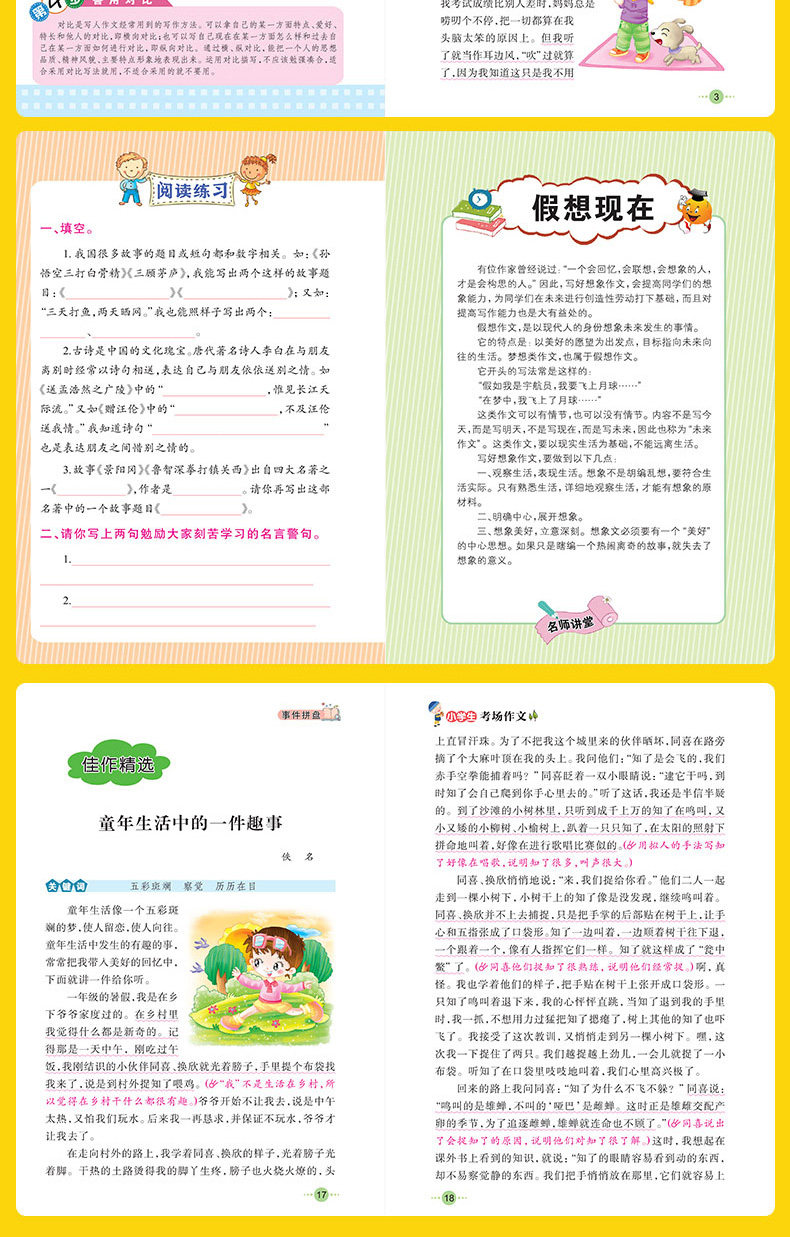 第4步 善用对比
对比是写人作文经常用到的写作方法。可以拿自己的某一方面特点、爱好、
特长和他人的对比,即横向对比;也可以写自己现在在某一方面怎么样和过去自
己在某一方面如何进行对比,即纵向对比。通过横、纵对比,能把一个人的思想
品质、精神风貌、主要特点形象地表现出来。运用对比描写,不应该勉强凑合,适
合采用对比写法就用,不适合采用的就不要用。
我考试成绩比别人差时,妈妈总是
唠叨个不停,把一切都算在我
头脑太笨的原因上。但我听
了就当作耳边风,“吹”过就算
了,因为我知道这只是我不用
3
阅读练习
一、填空。
1. 我国很多故事的题目或短句都和数字相关。如:《孙
悟空三打白骨精》《三顾茅庐》,我能写出两个这样的故事题
目:《 》《 》;又如:
“三天打鱼,两天晒网。”我也能照样子写出两个:
、 。
2.古诗是中国的文化瑰宝。唐代著名诗人李白在与朋友
离别时经常以诗句相送,表达自己与朋友依依送别之情。如
《送孟浩然之广陵》中的“ ,惟见长江天
际流。”又如《赠汪伦》中的“ ,不及汪伦
送我情。”我知道诗句“ ”
也是表达朋友之间惜别之情的。
3.故事《景阳冈》《鲁智深拳打镇关西》出自四大名著之
一《 》,作者是 。请你再写出这部
名著中的一个故事题目《 》。
二、请你写上两句勉励大家刻苦学习的名言警句。
1.
2.
假想现在
有位作家曾经说过:“一个会回忆,会联想,会想象的人,
才是会构思的人。”因此,写好想象作文,会提高同学们的想
象能力,为同学们在未来进行创造性劳动打下基础,而且对
提高写作能力也是大有益处的。
假想作文,是以现代人的身份想象未来发生的事情。
它的特点是:以美好的愿望为出发点,目标指向未来向
往的生活。梦想类作文,也属于假想作文。
它开头的写法常是这样的:
“假如我是宇航员,我要飞上月球……”
“在梦中,我飞上了月球……”
这类作文可以有情节,也可以没有情节。内容不是写今
天,而是写明天,不是写现在,而是写未来,因此也称为“未来
作文”。这类作文,要以现实生活为基础,不能远离生活。
写好想象作文,要做到以下几点:
一、观察生活,表现生活。想象不是胡编乱想,要符合生
活实际。只有熟悉生活,详细地观察生活,才能有想象的原
材料。
二、明确中心,展开想象。
三、想象美好,立意深刻。想象文必须要有一个“美好”
的中心思想。如果只是瞎编一个热闹离奇的故事,就失去了
想象的意义。
名师讲堂
事件拼盘
佳作精选
童年生活中的一件趣事
佚 名
关键词 五彩斑斓 察觉 历历在目
童年生活像一个五彩斑
斓的梦,使人留恋,使人向往。
童年生活中发生的有趣的事,
常常把我带入美好的回忆中,
下面就讲一件给你听。
一年级的暑假,我是在乡
下爷爷家度过的。在乡村里
我觉得什么都是新奇的。记
得那是一天中午,刚吃过午
饭,我刚结识的小伙伴同喜、换欣就光着膀子,手里提个布袋找
我来了,说是到村外捉知了喂鸡。(“我”不是生活在乡村,所
以觉得在乡村干什么都很有趣。)爷爷开始不让我去,说是中午
太热,又怕我们玩水。后来我一再恳求,并保证不玩水,爷爷才
让我去了。
在走向村外的路上,我学着同喜、换欣的样子,光着膀子光
着脚。干热的土路烫得我的脚丫生疼,膀子也火烧火燎的,头
17
小学生考场作文
上直冒汗珠。为了不把我这个城里来的伙伴晒坏,同喜在路旁
摘了个大麻叶顶在我的头上。我问他们:“知了是会飞的,我们
赤手空拳能捕着吗?”同喜眨着一双小眼睛说:“逮它干吗,到
时知了会自己爬到你手心里去的。”听了这话,我还是半信半疑
的。到了沙滩的小树林里,只听到成千上万的知了在鸣叫,又
小又矮的小柳树、小榆树上,趴着一只只知了,在太阳的照射下
拼命地叫着,好像在进行歌唱比赛似的。(用拟人的手法写知
了好像在唱歌,说明知了很多,叫声很大。)
同喜、换欣悄悄地说:“来,我们捉给你看。”他们二人一起
走到一棵小树下,小树干上的知了像是没发现,继续鸣叫着。
同喜、换欣并不上去捕捉,只是把手掌的后部贴在树干上,让手
心和五指张成了口袋形。知了一边叫着,一边顺着树干往下退,
一个跟着一个,像有人指挥它们一样。知了就这样成了“瓮中
鳖”了。(同喜他们捉知了很熟练,说明他们经常捉。)啊,真
怪。我也学着他们的样子,把手贴在树干上张开成口袋形。一
只知了鸣叫着退下来,我的心怦怦直跳,当知了退到我的手里
时,我一抓,不想用力过猛把知了摁瘪了,树上其他的知了也吓
飞了。我接受了这次教训,又悄悄走到另一棵小树下。嘿,这
次我一下捉住了两只。我们越捉越上劲儿,一会儿就捉了一小
布袋。听知了在口袋里吱吱地叫着,我们心里高兴极了。
回来的路上我问同喜:“知了为什么不飞不躲?”同喜说:
“鸣叫的是雄蝉,不叫的‘哑巴’是雌蝉。这时正是雄雌交配产
卵的季节,为了追逐雌蝉,雄蝉就连命也不顾了。”(同喜说出
了会捉知了的原因,说明他们对知了很了解。)这时,我想起在
课外书上看到的知识,就说:“知了的眼睛容易看到动的东西,
却不易察觉静的东西。我们把手悄悄放在那里,它们就容易上
18